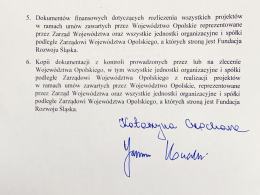 5. Dokumentów finansowych dotyczących rozliczenia wszystkich projektów
w ramach umów zawartych przez Województwo Opolskie, reprezentowane
przez Zarząd Województwa Opolskiego oraz wszystkie jednostki organizacyjne i spółki
podległe Zarządowi Województwa Opolskiego, a których stroną jest Fundacja
Rozwoju Śląska.
6. Kopii dokumentacji z kontroli prowadzonych przez lub na zlecenie
Województwa Opolskiego, w tym wszystkie jednostki organizacyjne i spółki
podległe Zarządowi Województwa Opolskiego z realizacji projektów
w ramach umów zawartych przez Województwo Opolskie, reprezentowane
przez Zarząd Województwa Opolskiego oraz wszystkie jednostki organizacyjne i spółki
podległe Zarządowi Województwa Opolskiego, a których stroną jest Fundacja
Rozwoju Śląska.
Katarzyna Czochara